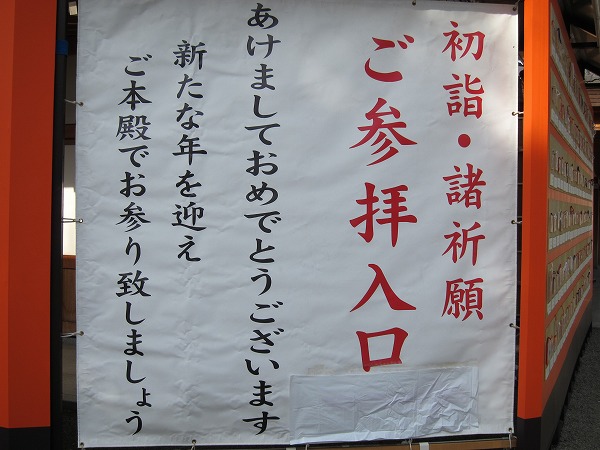 初詣・諸祈願
ご参拝入口
あけましておめでとうございます
新たな年を迎え
ご本殿でお参り致しましょう